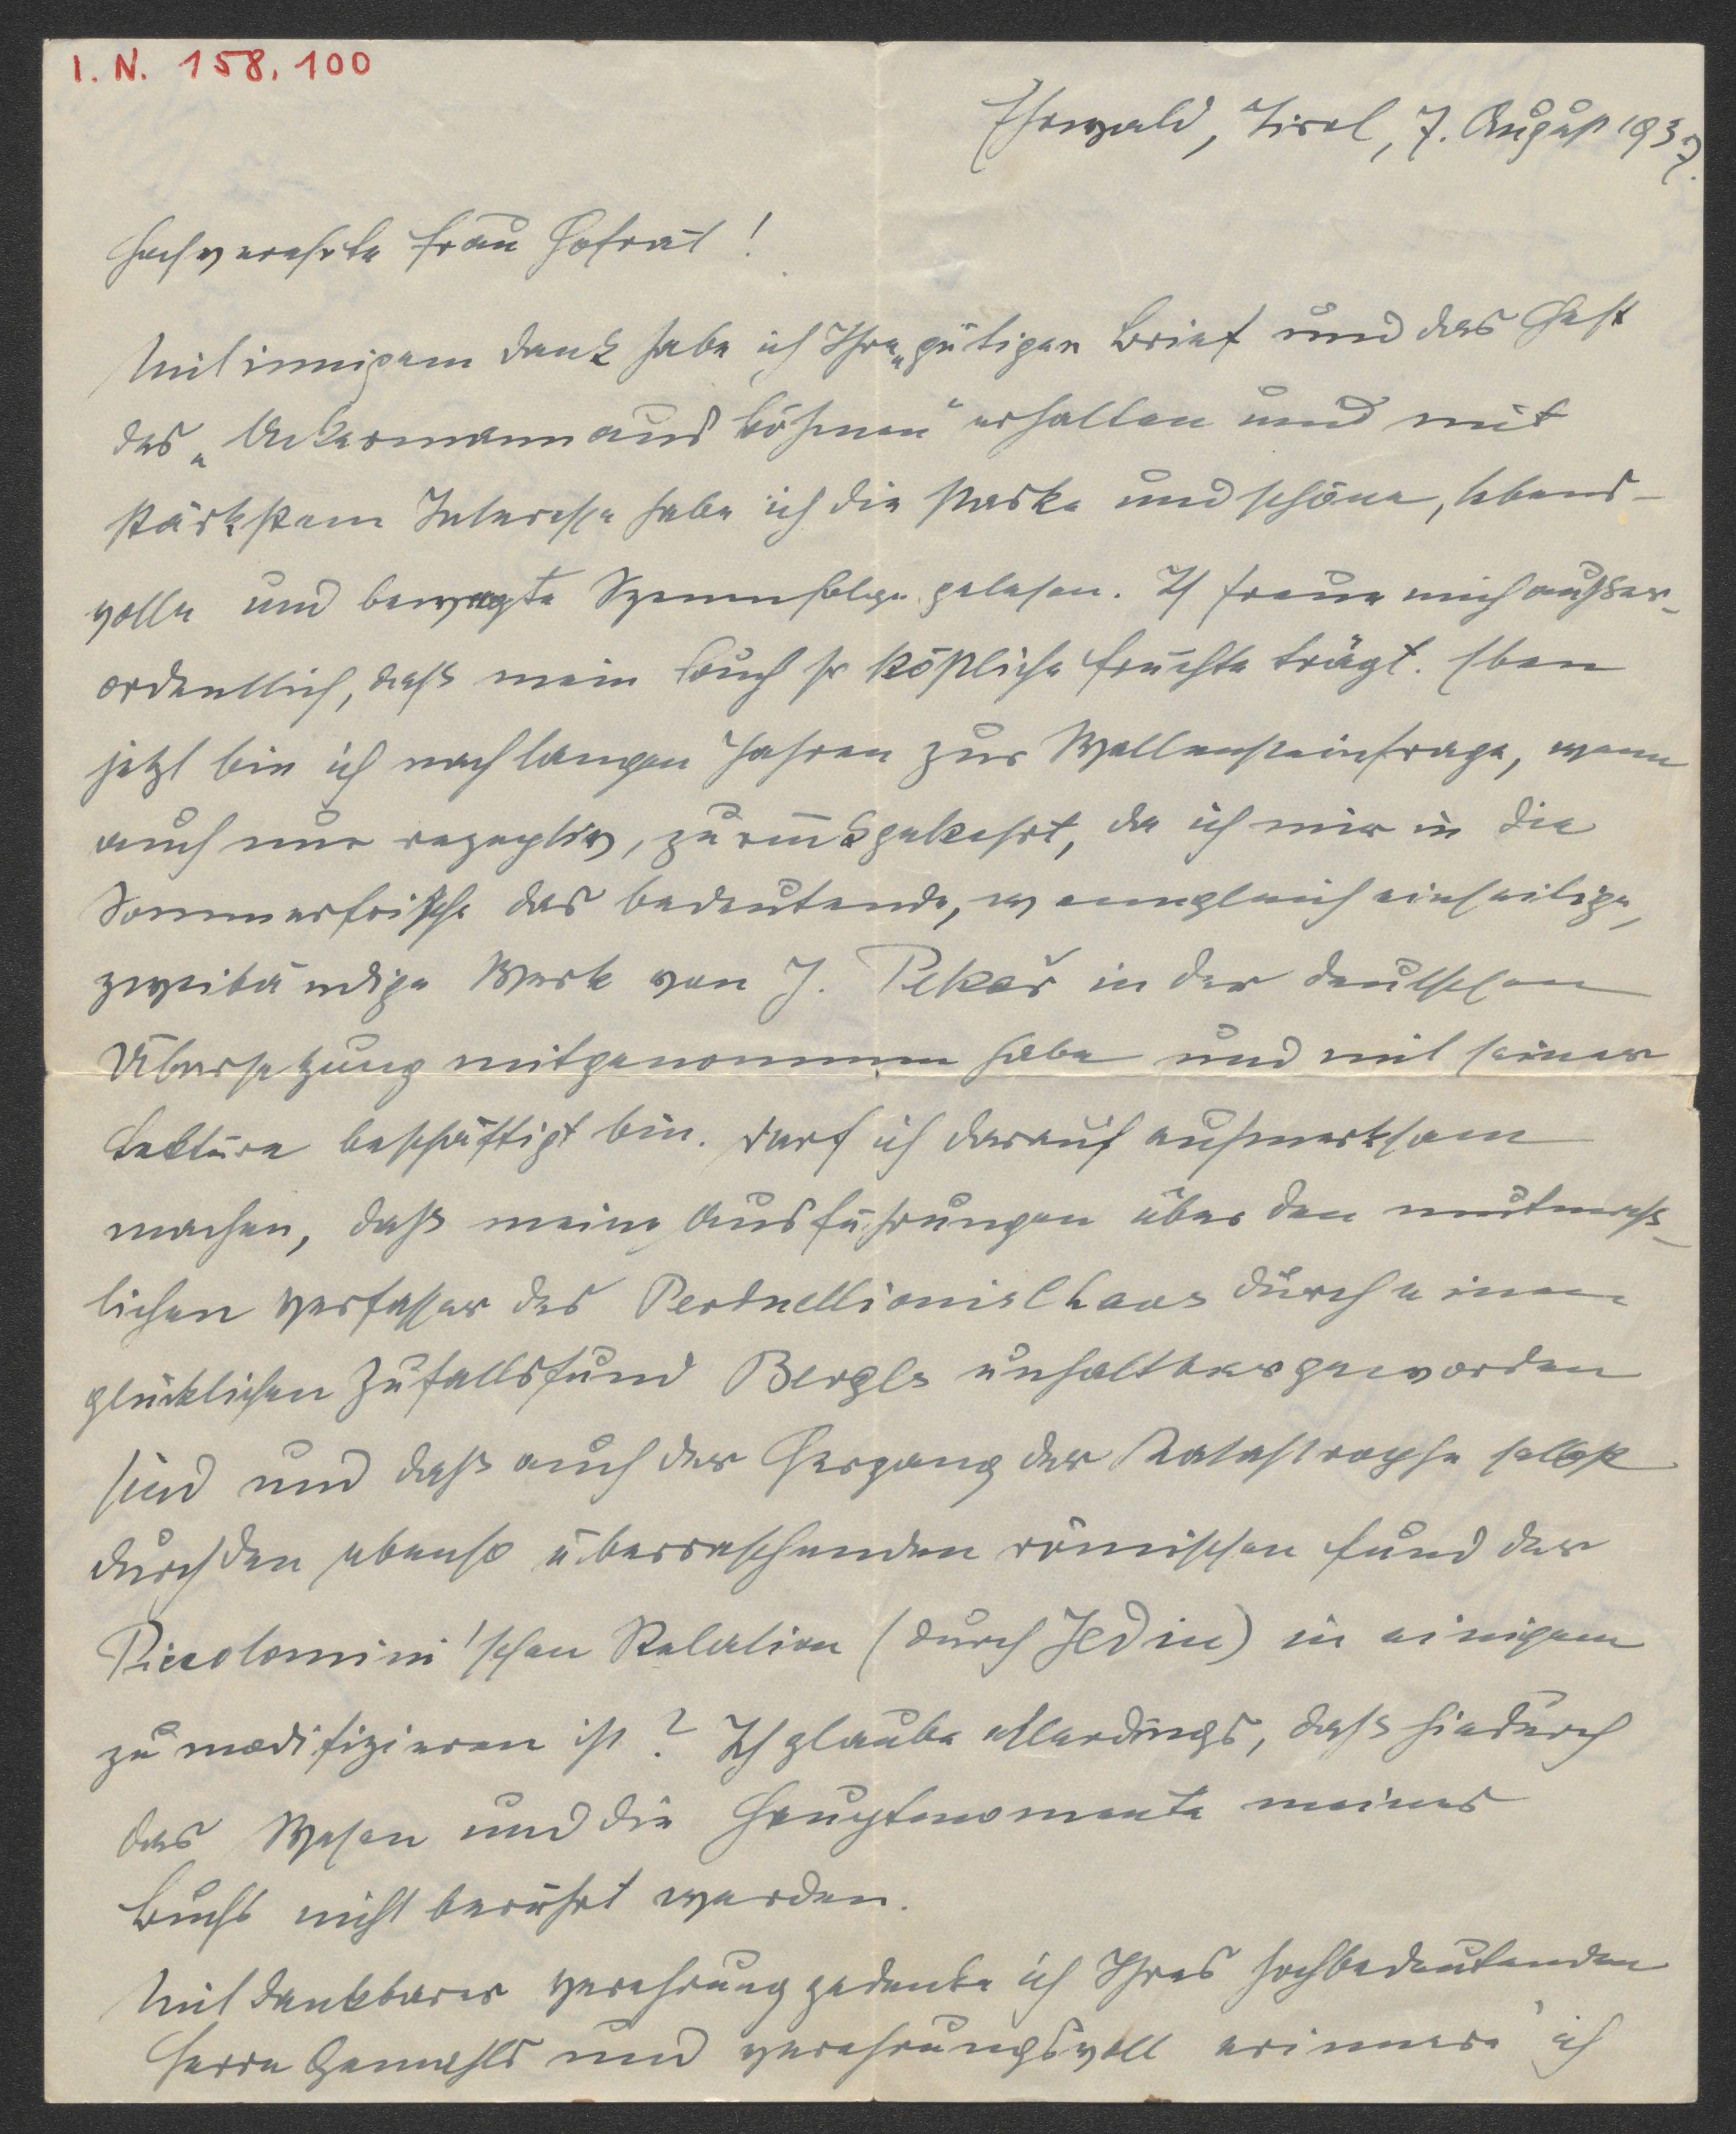 I. N. 158.100
Ehrwald, Tirol, 7. August 1937.
Hochverehrte Frau Hofrat!
Mit innigem Dank habe ich Ihren gütigen Brief und das Heft
des „Ackermann aus Böhmen" erhalten und mit
stärkstem Interesse habe ich die starke und schöne, lebens-
volle und bewegte Szenenfolge gelesen. Ich freue mich außer-
ordentlich, daß mein Buch so köstliche Früchte trägt. Eben
jetzt bin ich nach langen Jahren zur Wallensteinfrage, wenn
auch nur rezeptiv, zurückgekehrt, da ich mir in die
Sommerfrische das bedeutende, wenngleich einseitige,
zweibändige Werk von J. Pekař in der deutschen
Übersetzung mitgenommen habe und mit seiner
Lektüre beschäftigt bin. Darf ich darauf aufmerksam
machen, daß meine Ausführungen über den mutmaß-
lichen Verfasser des Perduellionis Chaos durch einen
glücklichen Zufallsfund Bergls unhaltbar geworden
sind und daß auch der Hergang der Katastrophe selbst
durch den ebenso überraschenden römischen Fund der
Piccolomini'schen Relation (durch Jedin) in einigem
zu modifizieren ist? Ich glaube allerdings, daß hiedurch
das Wesen und die Hauptmomente meines
Buchs nicht berührt werden.
Mit dankbarer Verehrung gedenke ich Ihres hochbedeutenden
Herrn Gemahls und verehrungsvoll erinnere ich